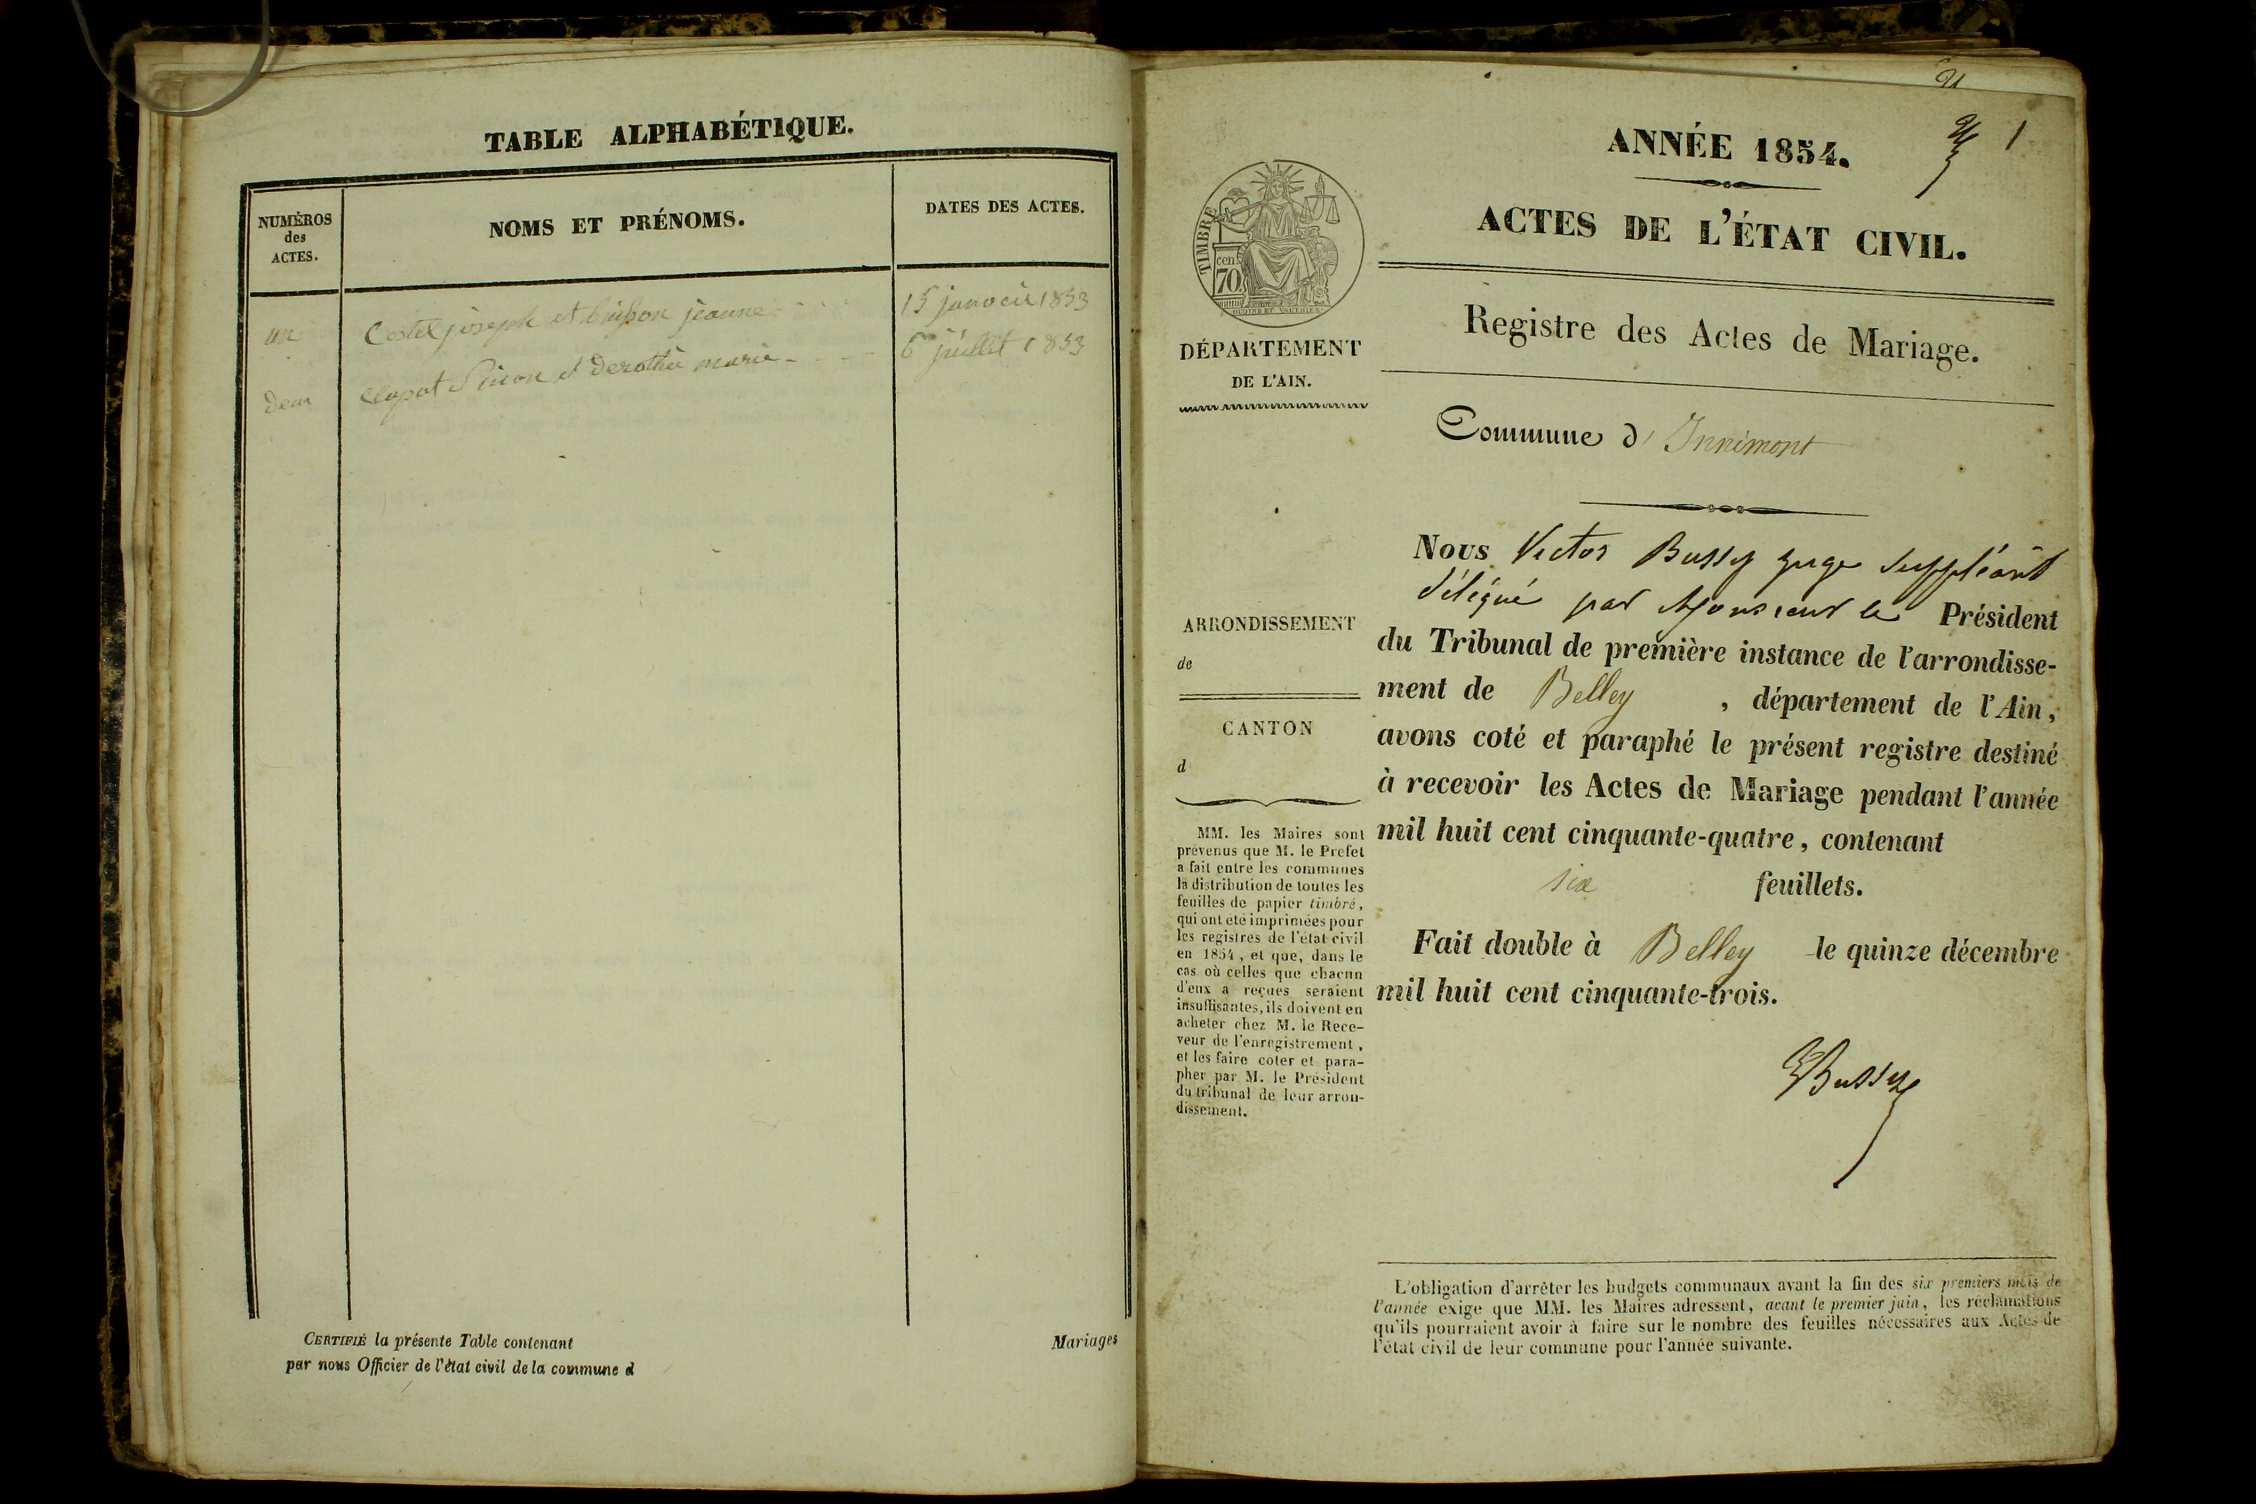 TABLE ALPHABÉTIQUE.
NUMÉROS
des
ACTES.
NOMS ET PRÉNOMS.
DATES DES ACTES.
un Costel joseph et buisson jeanne 15 janvier 1853
Deux Clapot et Derothée marie 6 juillet 1853
CERTIFIÉ la présente Table contenant Mariages
par nous Officier de l'état civil de la commune d
1
ANNÉE 1854.
ACTES DE L'ÉTAT CIVIL.
Registre des Actes de Mariage.
TIMBRE
cen.
70
DÉPARTEMENT
DE L'AIN.
Commune d'Innimont
ARRONDISSEMENT
de
CANTON
d
MM. les Maires sont
prévenus que M. le Préfet
a fait entre les communes
la distribution de toutes les
feuilles de papier timbré,
qui ont été imprimées pour
les registres de l'état civil
en 1854, et que, dans le
cas où celles que chacun
d'eux a reçues seraient
insuffisantes, ils doivent en
acheter chez M. le Rece-
veur de l'enregistrement,
et les faire coter et para-
pher par M. le Président
du tribunal de leur arron-
dissement.
Nous Victor Bussy juge suppléant
délégué par Monsieur le Président
du Tribunal de première instance de l'arrondisse-
ment de Belley, département de l'Ain,
avons coté et paraphé le présent registre destiné
à recevoir les Actes de Mariage pendant l'année
mil huit cent cinquante-quatre, contenant
six feuillets.
Fait double à Belley le quinze décembre
mil huit cent cinquante-trois.
Bussy
L'obligation d'arrêter les budgets communaux avant la fin des six premiers mois de
l'année exige que MM. les Maires adressent, avant le premier juin, les réclamations
qu'ils pourraient avoir à faire sur le nombre des feuilles nécessaires aux Actes de
l'état civil de leur commune pour l'année suivante.